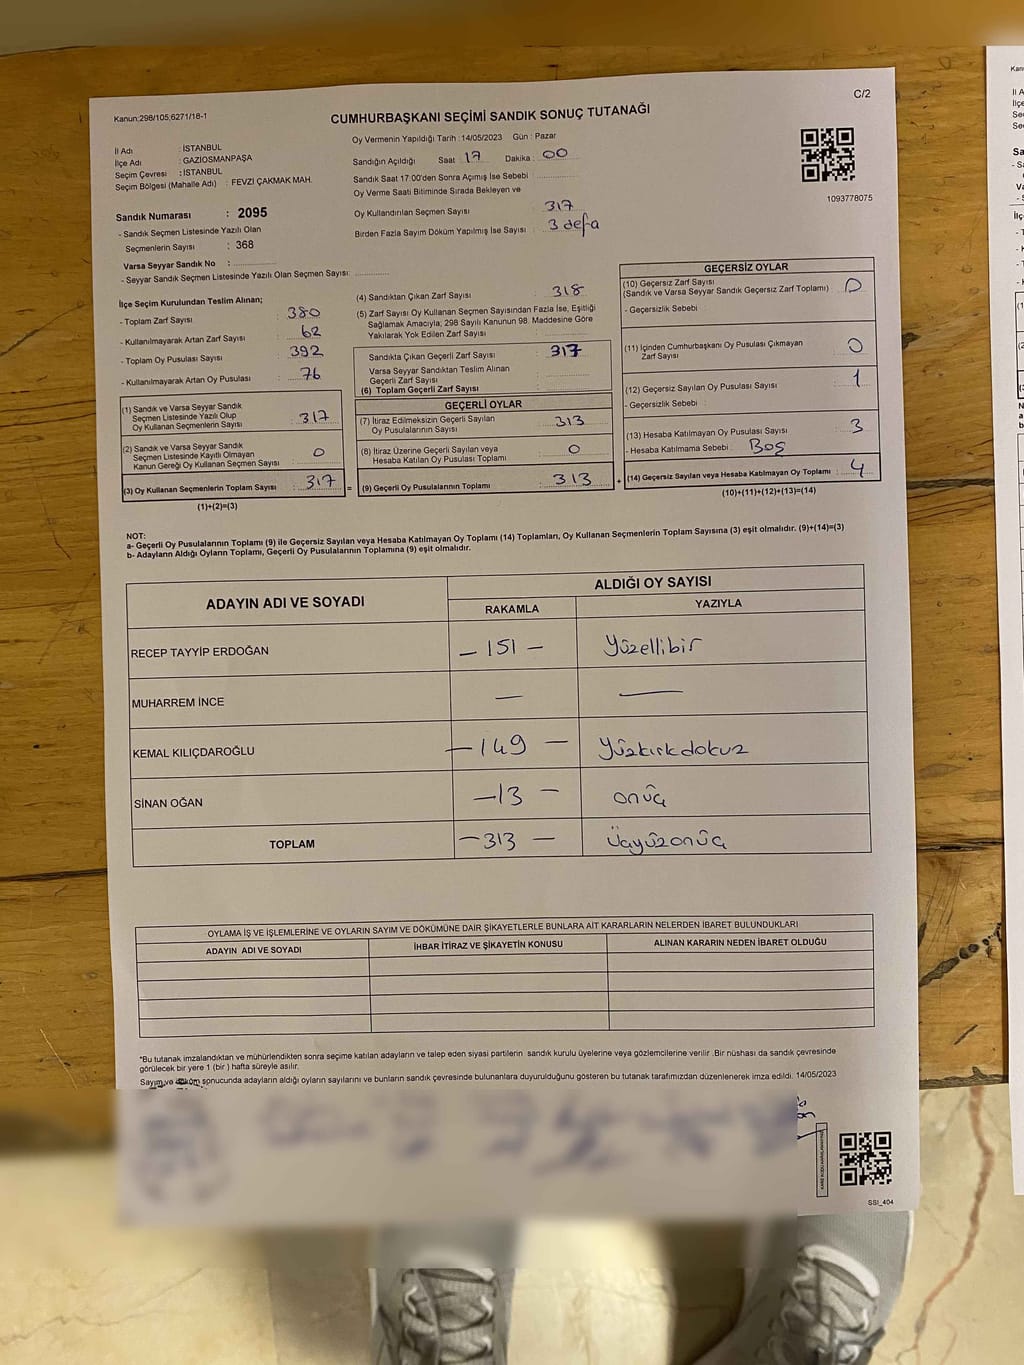 C/2
Kanun:298/105,6271/18-1
CUMHURBAŞKANI SEÇİMİ SANDIK SONUÇ TUTANAĞI
İl Adı : İSTANBUL
İlçe Adı : GAZİOSMANPAŞA
Seçim Çevresi : İSTANBUL
Seçim Bölgesi (Mahalle Adı) : FEVZİ ÇAKMAK MAH.
Sandık Numarası : 2095
- Sandık Seçmen Listesinde Yazılı Olan
Seçmenlerin Sayısı : 368
Varsa Seyyar Sandık No :
- Seyyar Sandık Seçmen Listesinde Yazılı Olan Seçmen Sayısı:
Oy Vermenin Yapıldığı Tarih : 14/05/2023 Gün : Pazar
Sandığın Açıldığı Saat 17 Dakika : 00
Sandık Saat 17:00'den Sonra Açımış İse Sebebi
Oy Verme Saati Bitiminde Sırada Bekleyen ve
Oy Kullandırılan Seçmen Sayısı 317
Birden Fazla Sayım Döküm Yapılmış İse Sayısı : 3 defa
1093778075
İlçe Seçim Kurulundan Teslim Alınan;
- Toplam Zarf Sayısı : 380
- Kullanılmayarak Artan Zarf Sayısı : 62
- Toplam Oy Pusulası Sayısı : 392
- Kullanılmayarak Artan Oy Pusulası : 76
(1) Sandık ve Varsa Seyyar Sandık
Seçmen Listesinde Yazılı Olup
Oy Kullanan Seçmenlerin Sayısı : 317
(2) Sandık ve Varsa Seyyar Sandık
Seçmen Listesinde Kayıtlı Olmayan
Kanun Gereği Oy Kullanan Seçmen Sayısı : 0
(3) Oy Kullanan Seçmenlerin Toplam Sayısı : 317
(1)+(2)=(3)
(4) Sandıktan Çıkan Zarf Sayısı : 318
(5) Zarf Sayısı Oy Kullanan Seçmen Sayısından Fazla İse, Eşitliği
Sağlamak Amacıyla, 298 Sayılı Kanunun 98. Maddesine Göre
Yakılarak Yok Edilen Zarf Sayısı
Sandıkta Çıkan Geçerli Zarf Sayısı : 317
Varsa Seyyar Sandıktan Teslim Alınan
Geçerli Zarf Sayısı
(6) Toplam Geçerli Zarf Sayısı
GEÇERLİ OYLAR
(7) İtiraz Edilmeksizin Geçerli Sayılan
Oy Pusulalarının Sayısı : 313
(8) İtiraz Üzerine Geçerli Sayılan veya
Hesaba Katılan Oy Pusulası Toplamı : 0
= (9) Geçerli Oy Pusulalarının Toplamı : 313 +
GEÇERSİZ OYLAR
(10) Geçersiz Zarf Sayısı
(Sandık ve Varsa Seyyar Sandık Geçersiz Zarf Toplamı) : 0
- Geçersizlik Sebebi :
(11) İçinden Cumhurbaşkanı Oy Pusulası Çıkmayan
Zarf Sayısı : 0
(12) Geçersiz Sayılan Oy Pusulası Sayısı : 1
- Geçersizlik Sebebi :
(13) Hesaba Katılmayan Oy Pusulası Sayısı : 3
- Hesaba Katılmama Sebebi : Boş
(14) Geçersiz Sayılan veya Hesaba Katılmayan Oy Toplamı : 4
(10)+(11)+(12)+(13)=(14)
NOT:
a- Geçerli Oy Pusulalarının Toplamı (9) ile Geçersiz Sayılan veya Hesaba Katılmayan Oy Toplamı (14) Toplamları, Oy Kullanan Seçmenlerin Toplam Sayısına (3) eşit olmalıdır. (9)+(14)=(3)
b- Adayların Aldığı Oyların Toplamı, Geçerli Oy Pusulalarının Toplamına (9) eşit olmalıdır.
ADAYIN ADI VE SOYADI ALDIĞI OY SAYISI
RAKAMLA YAZIYLA
RECEP TAYYİP ERDOĞAN – 151 – Yüzellibir
MUHARREM İNCE – —
KEMAL KILIÇDAROĞLU – 149 – Yüzkırkdokuz
SİNAN OĞAN – 13 – onüç
TOPLAM – 313 – Üçyüzonüç
OYLAMA İŞ VE İŞLEMLERİNE VE OYLARIN SAYIM VE DÖKÜMÜNE DAİR ŞİKAYETLERLE BUNLARA AİT KARARLARIN NELERDEN İBARET BULUNDUKLARI
ADAYIN ADI VE SOYADI İHBAR İTİRAZ VE ŞİKAYETİN KONUSU ALINAN KARARIN NEDEN İBARET OLDUĞU
*Bu tutanak imzalandıktan ve mühürlendikten sonra seçime katılan adayların ve talep eden siyasi partilerin sandık kurulu üyelerine veya gözlemcilerine verilir .Bir nüshası da sandık çevresinde
görülecek bir yere 1 (bir ) hafta süreyle asılır.
Sayım ve döküm sonucunda adayların aldığı oyların sayılarını ve bunların sandık çevresinde bulunanlara duyurulduğunu gösteren bu tutanak tarafımızdan düzenlenerek imza edildi. 14/05/2023
SSI_404